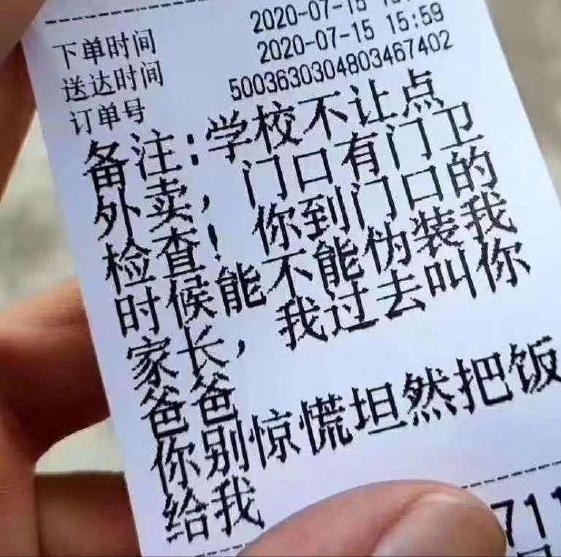 下单时间
2020-07-15
送达时间
2020-07-15 15:59
订单号
5003630304803467402
备注:学校不让点
外卖,门口有门卫
检查!你到门口的
时候能不能伪装我
家长,我过去叫你
爸爸
你别惊慌坦然把饭
给我
711